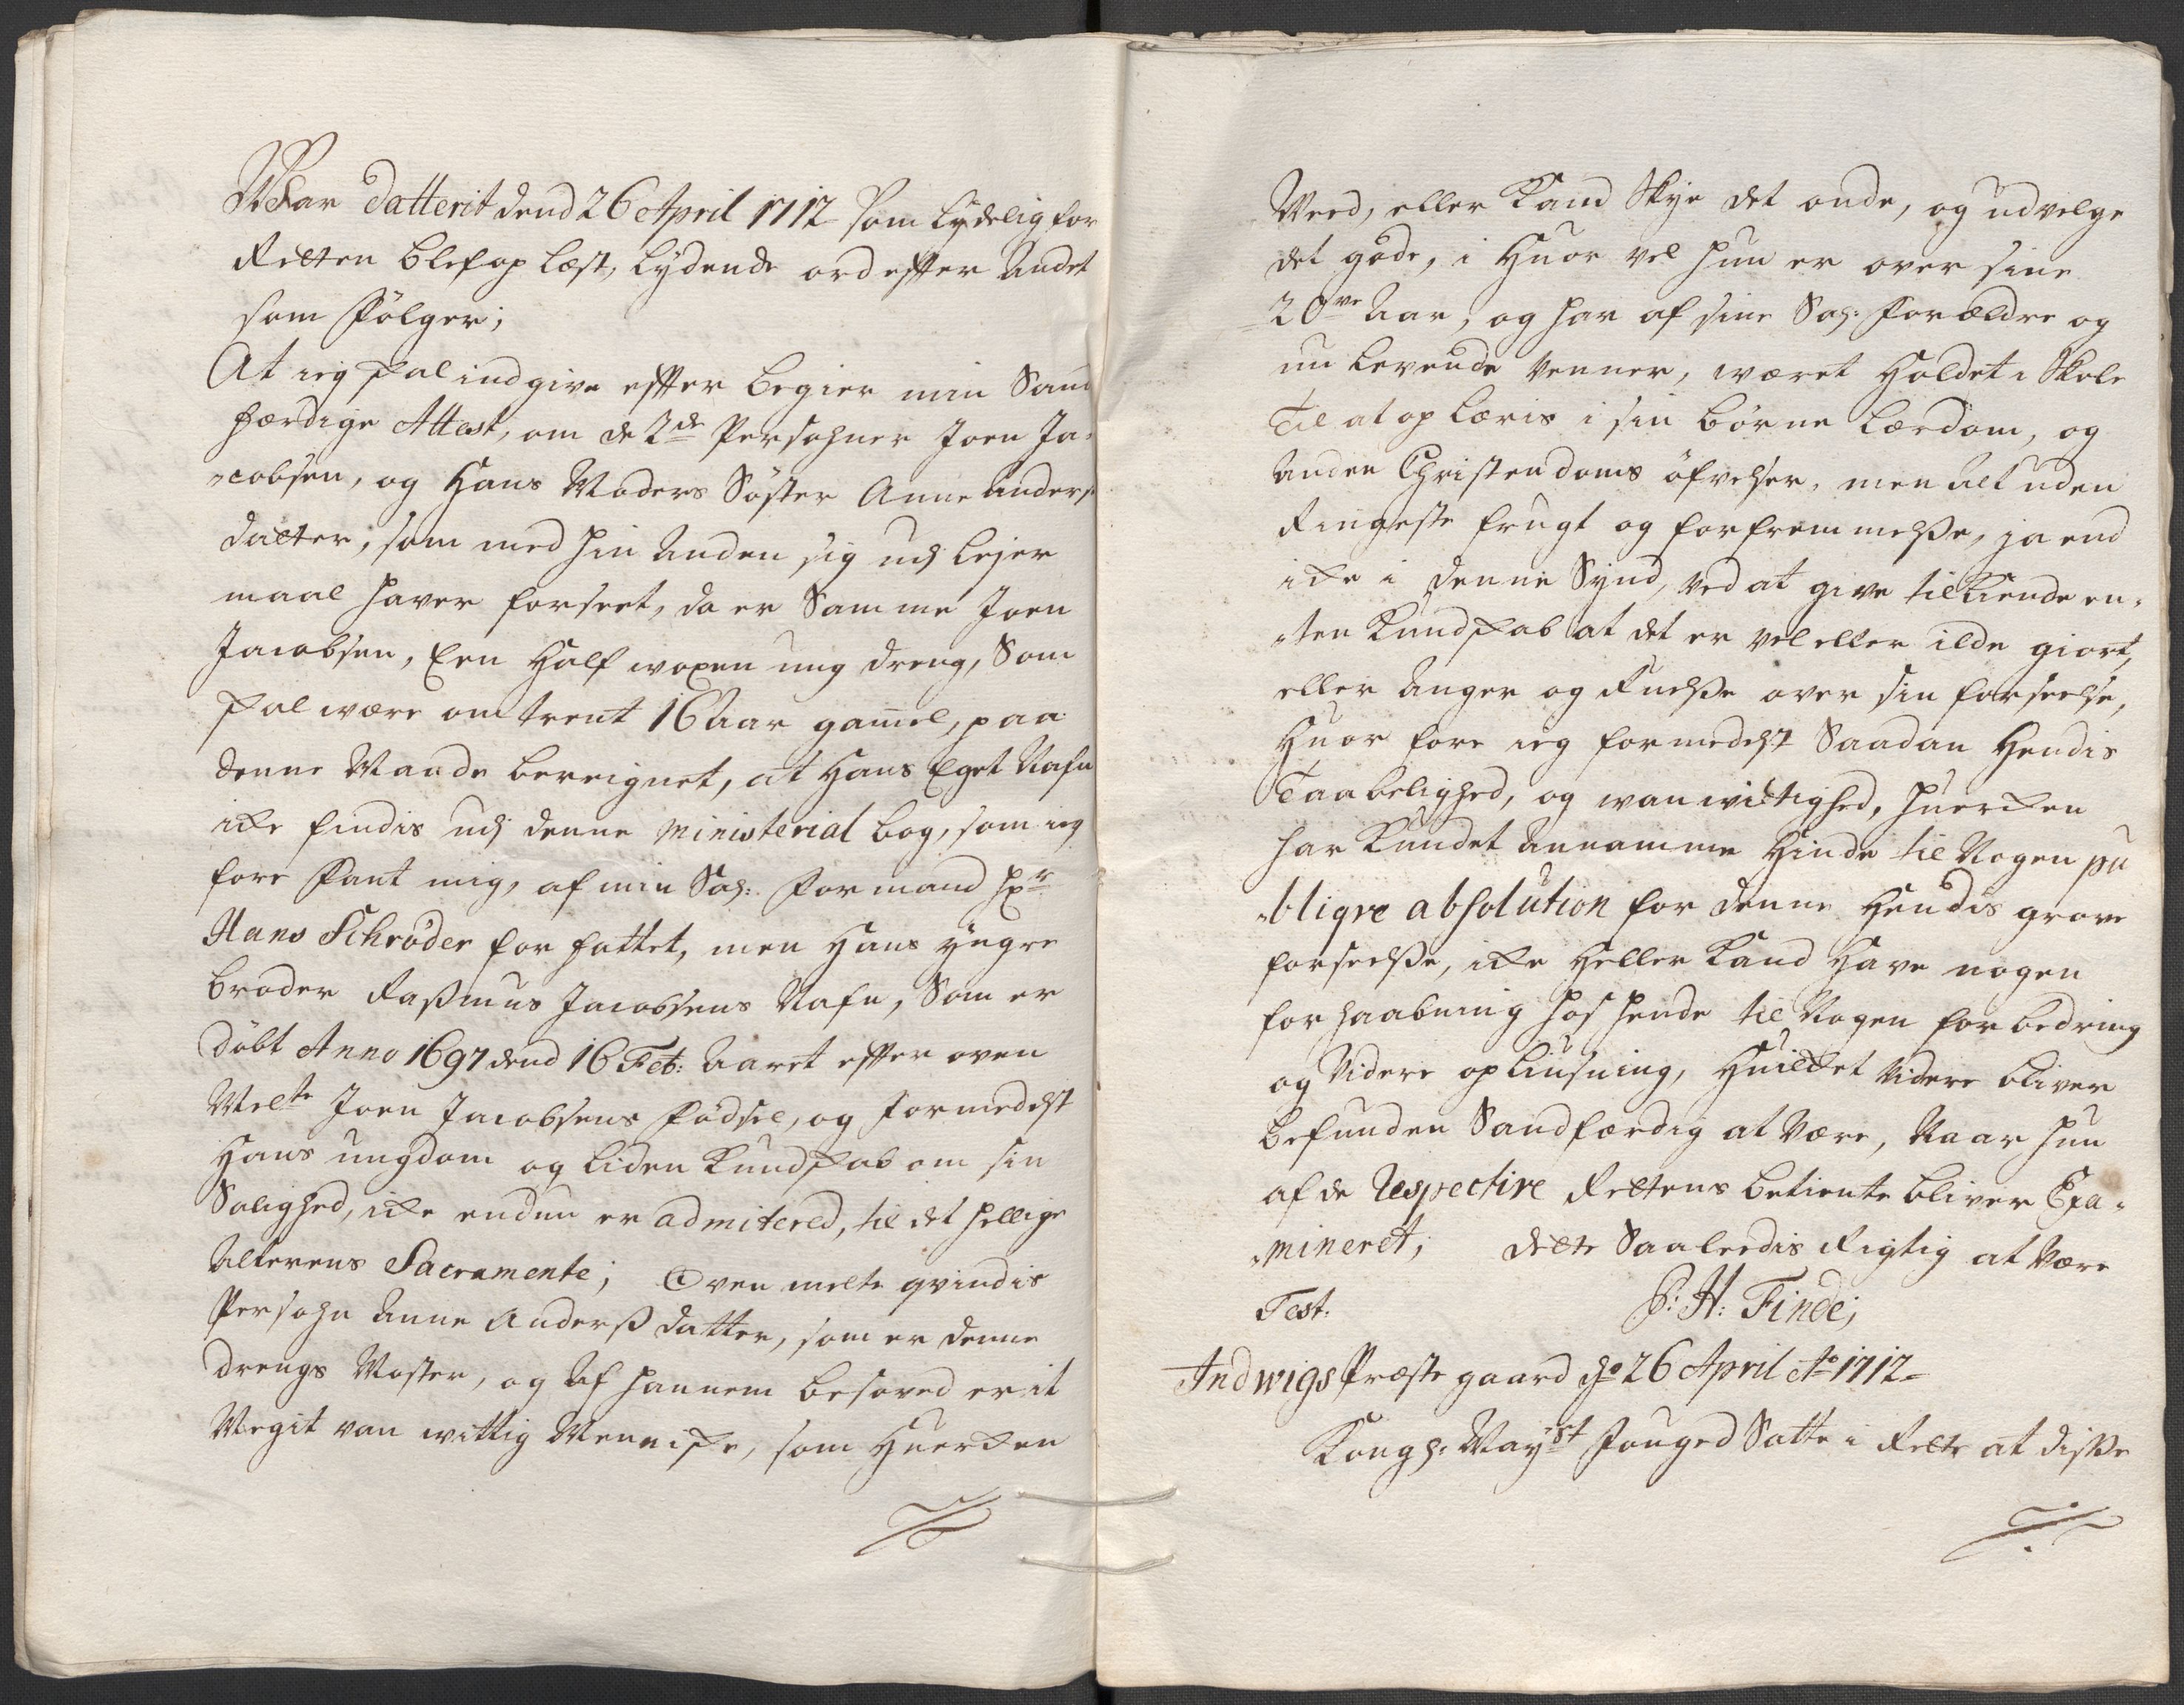 WVar datterit dend 26 April 1712 som lydelig for
Retten blef op læst, lydende ord efter Andet
som følger;
At ieg skal indgive efter begier min Sand
færdige Attest, om de 2de Persohner Joen Ja-
cobsen, og Hans Moders Søster Anne Anders
datter, som med hin Anden sig udj lejer
maal haver forseet, da er Samme Joen
Jacobsen, Een Half woxen ung dreng, Som
skal være omtrent 16 Aar gamel, paa
denne Maade bereignet, at Hans Eget Nafn
icke findis udj denne Ministerial bog, som ieg
fore fant mig, af min Sal: formand Hr
Hans Schrøder for fattet, men Hans yngre
broder Rasmus Jacobsens Nafn, Som er
døbt Anno 1697 dend 16 Feb: Aaret efter oven
Melte Joen Jacobsens fødsel, og formedelst
Hans ungdom og liden Kundskab om sin
Salighed, icke endnu er admitered, til det hellige
Alterens Sacramente; Oven melte qvindis
Persohn Anne Anderß datter, som er denne
drengs Moster, og Af hannem besoved er it
Megit van wittig Menniske, som Huercken
Weed, eller Kand Skye det onde, og udvelge
det gode, i Huor vel hun er over sine
20ve Aar, og har af sine Sal: forældre og
nu levende Venner, wæret Holdet i Skole
til at op læris i sin børne lærdom, og
Anden Christendoms øfvelser, men Alt uden
Ringeste frugt og forfremmelße, ja end
icke i denne Synd, ved at give tilkiende en-
ten Kundskab at det er vel eller ilde giort,
eller Anger og Ruelße over sin forseelse,
Huor fore ieg formedelst Saadan Hendis
Taabelighed, og wanwittighed, huercken
har Kundet Annamme Hinde til Nogen pu
bliqve absolution for denne Hendis grove
forseelße, icke Heller Kand Have nogen
forhaabning hos hende til Nogen forbedring
og Videre opliusning, Huilcket Videre bliver
befunden Sandfærdig at Være, Naar hun
af de Respective Rettens betiente bliver Exa-
mineret; dette Saaleedis Rigtig at Være
Test. P: H: Finde;
Indwigs Præste gaard do 26 April Ao 1712
Kongl: Mayst Fouged Satte i Rette at disse